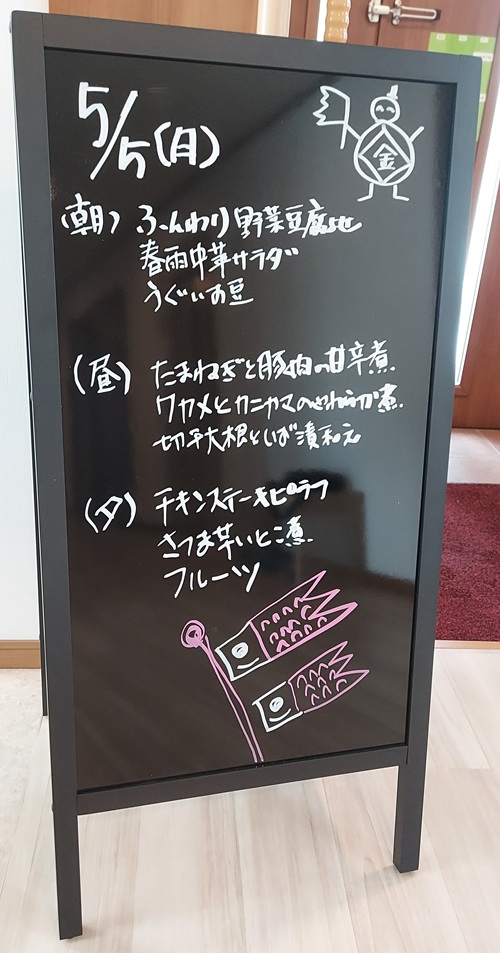 5/5(日)
金
(朝) ふんわり野菜豆腐
春雨中華サラダ
うぐいす豆
(昼) たまねぎと豚肉の甘辛煮
ワカメとカニカマのやわらか煮
切干大根としば漬和え
(夕) チキンステーキピラフ
さつま芋いとこ煮
フルーツ